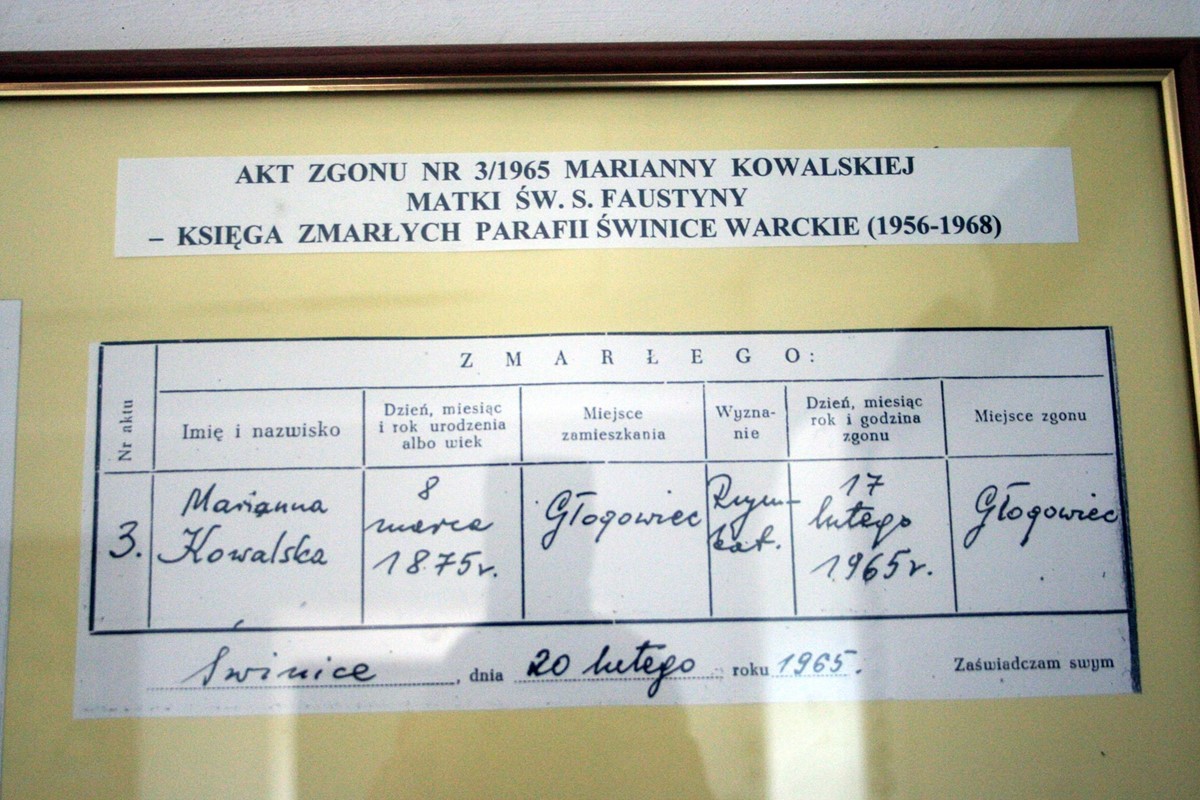 AKT ZGONU NR 3/1965 MARIANNY KOWALSKIEJ
MATKI ŚW. S. FAUSTYNY
– KSIĘGA ZMARŁYCH PARAFII ŚWINICE WARCKIE (1956-1968)
ZMARŁEGO:
Nr aktu
Imię i nazwisko
Dzień, miesiąc
i rok urodzenia
albo wiek
Miejsce
zamieszkania
Wyzna-
nie
Dzień, miesiąc
rok i godzina
zgonu
Miejsce zgonu
3.
Marianna
Kowalska
8
marca
1875r.
Głogowiec
Rzym-
kat.
17
lutego
1965r.
Głogowiec
Świnice, dnia 20 lutego roku 1965. Zaświadczam swym